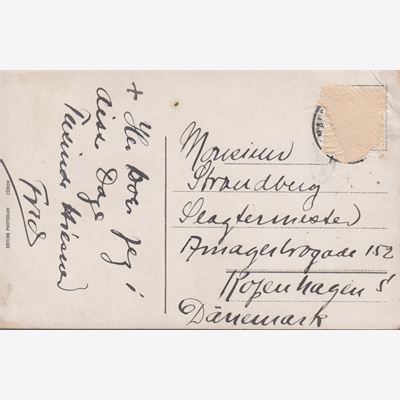 + Her Boer jeg i
disse Dage
Venlig Hilsen
Fred
EDITION PHOTOGLOB ZÜRICH
Monsieur
Strandberg
Slagtermester
Amagerbrogade 152
Kopenhagen S
Dänemark